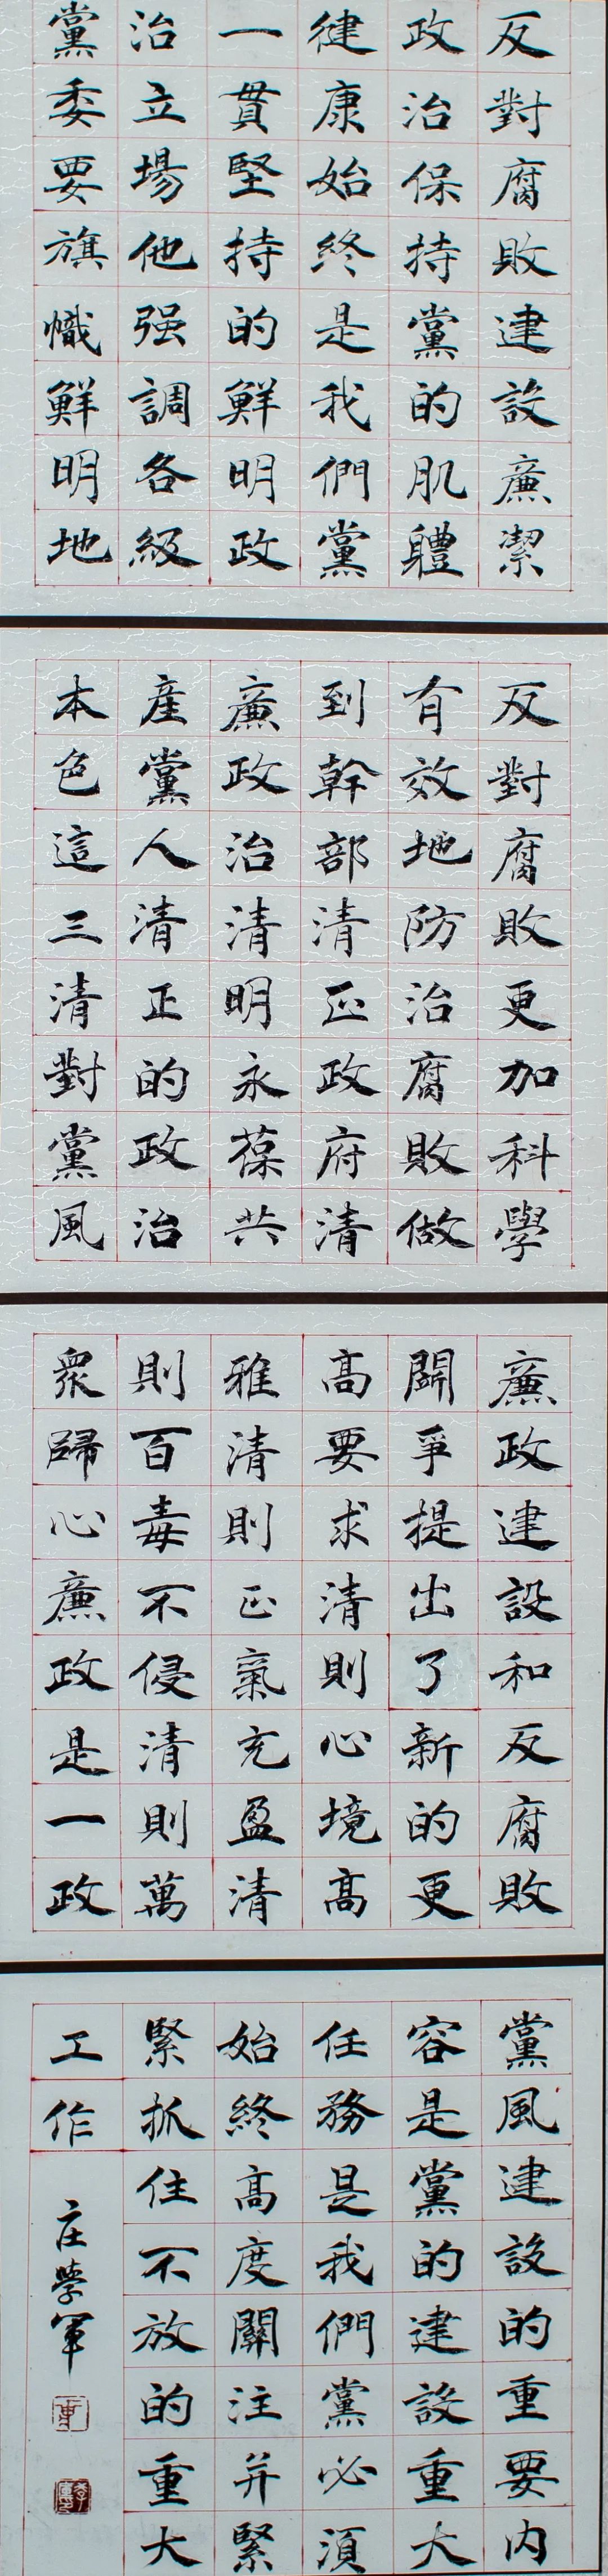 反對腐敗建設廉潔
政治保持黨的肌體
健康始終是我們黨
一貫堅持的鮮明政
治立場他强調各級
黨委要旗幟鮮明地
反對腐敗更加科學
有效地防治腐敗做
到幹部清正政府清
廉政治清明永葆共
産黨人清正的政治
本色這三清對黨風
廉政建設和反腐敗
鬭爭提出了新的更
高要求清則心境高
雅清則正氣充盈清
則百毒不侵清則萬
衆歸心廉政是一政
黨風建設的重要内
容是黨的建設重大
任務是我們黨必須
始終高度關注并緊
緊抓住不放的重大
工作
庄學軍